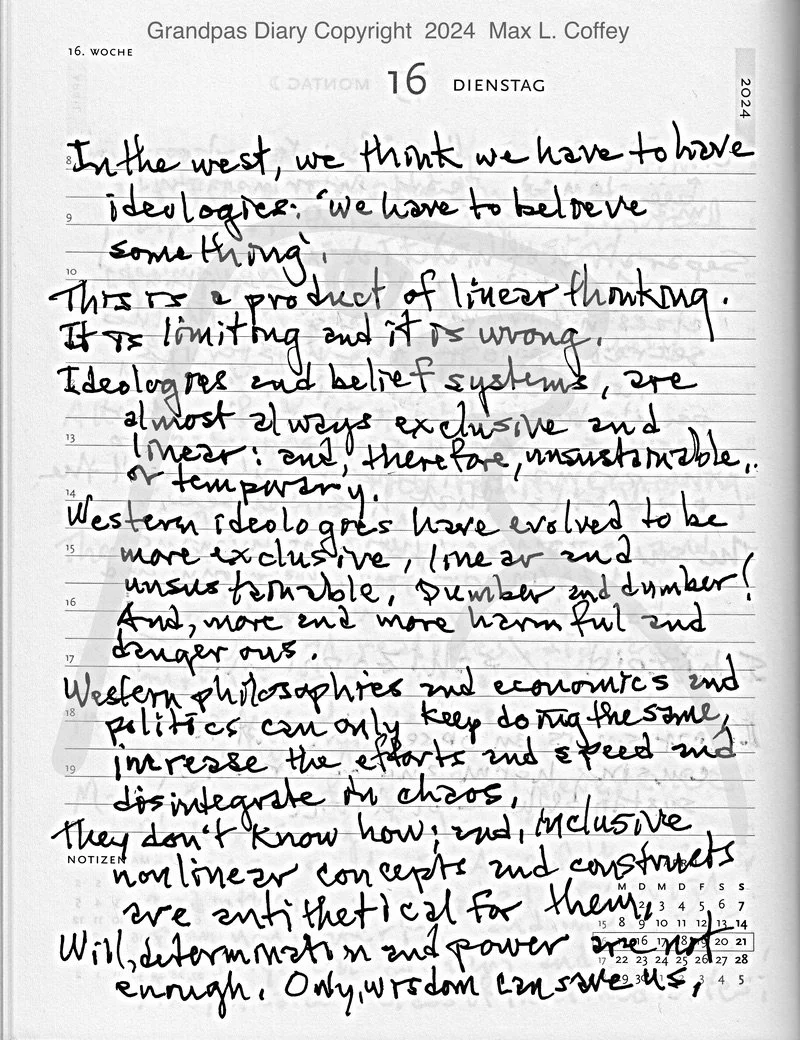 Grandpas Diary Copyright 2024 Max L. Coffey
16. WOCHE
16 DIENSTAG
2024
8 In the west, we think we have to have
9 ideologies: 'we have to believe
something'.
10
This is a product of linear thinking.
It is limiting and it is wrong.
Ideologies and belief systems, are
almost always exclusive and
13 linear: and, therefore, unsustainable,.
or temporary.
14
Western ideologies have evolved to be
15 more exclusive, linear and
unsustainable, Dumber and dumber!
16 And, more and more harmful and
17 dangerous.
Western philosophies and economics and
18 politics can only keep doing the same,
increase the efforts and speed and
19 disintegrate in chaos,
They don't know how; and, inclusive
NOTIZEN
nonlinear concepts and constructs
are antithetical for them,
Will, determination and power are not
enough. Only, wisdom can save us,
M D M D F S S
2 3 4 5 6 7
15 8 9 10 11 12 13 14
16 17 18 19 20 21
17 22 23 24 25 26 27 28
29 30 3 4 5